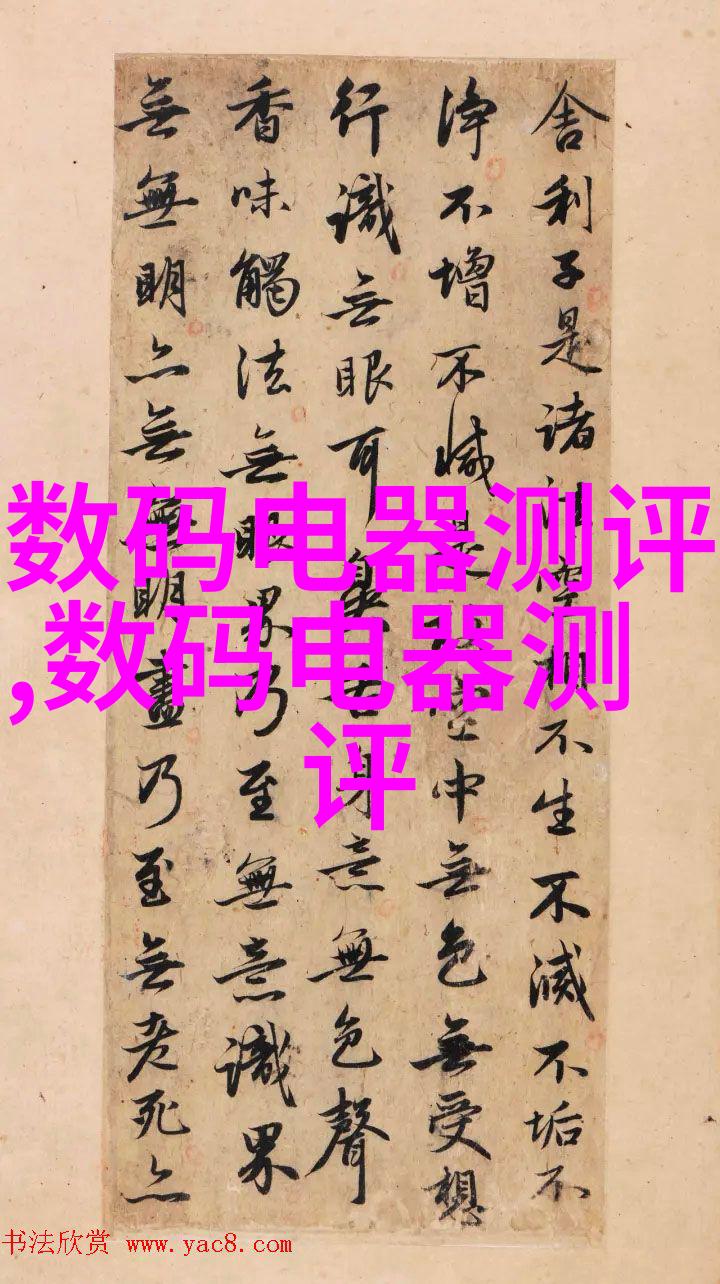 舍利子是諸法空相不生不滅不垢不
淨不增不減是故空中無色無受想
行識無眼耳鼻舌身意無色聲
香味觸法無眼界乃至無意識界
無無明亦無無明盡乃至無老死亦
数码电器测评
,数码电器测
评
书法欣赏 www.yac8.com